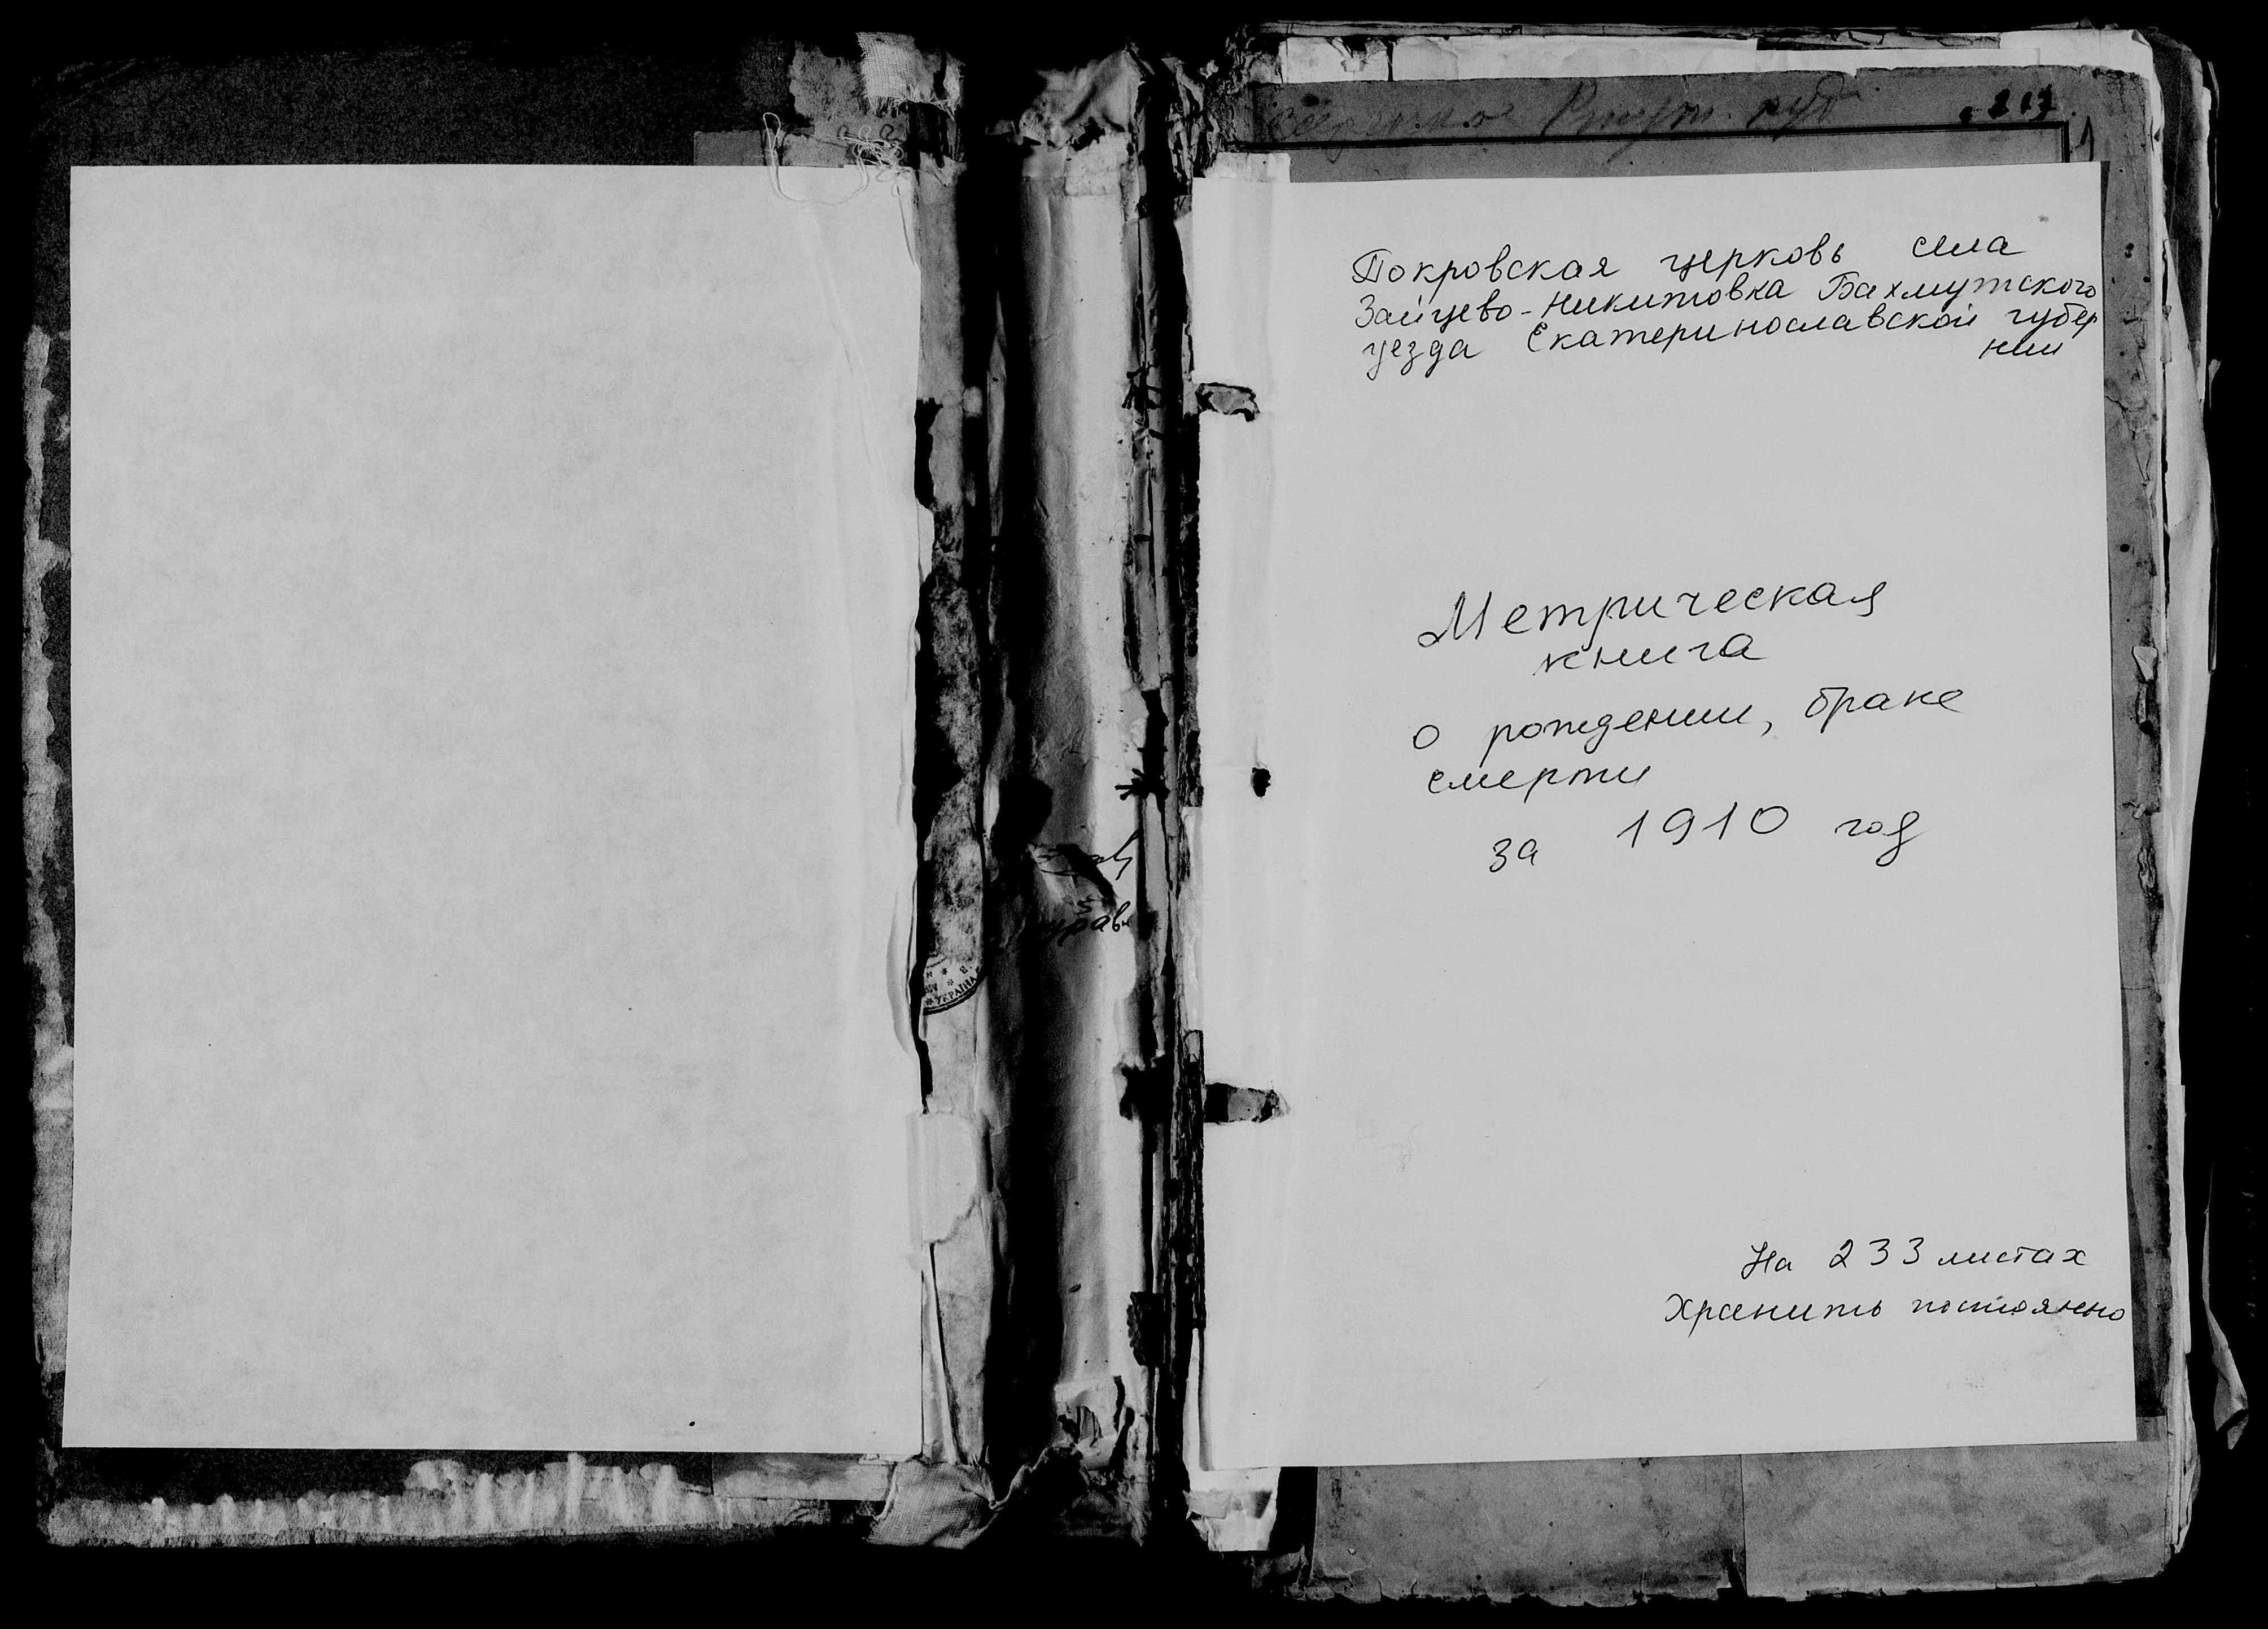 Покровская церковь села
Зайцево-Никитовка Бахмутского
уезда Екатеринославской губер
нии
Метрическая
книга
о рождении, браке
смерти
за 1910 год
На 233 листах
Хранить постоянно
УКРАЇНА